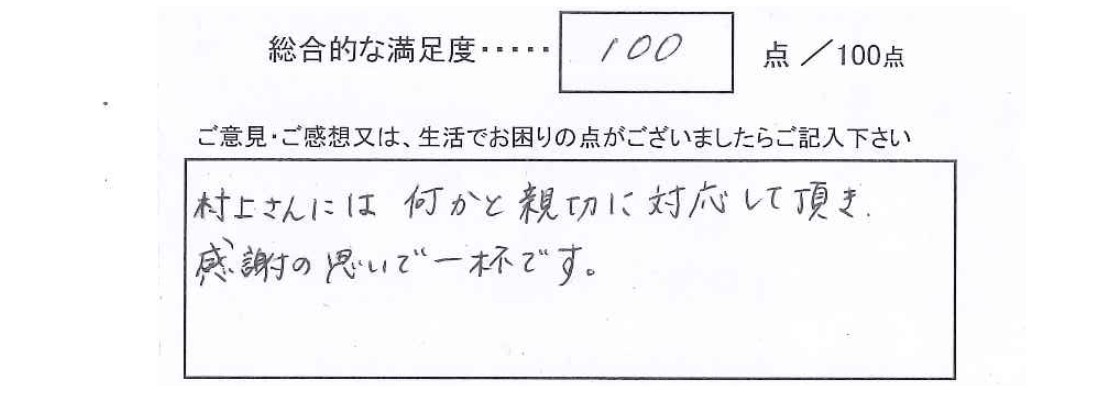 総合的な満足度・・・・・ 100 点／100点
ご意見・ご感想又は、生活でお困りの点がございましたらご記入下さい
村上さんには 何かと親切に対応して頂き.
感謝の思いで一杯です。